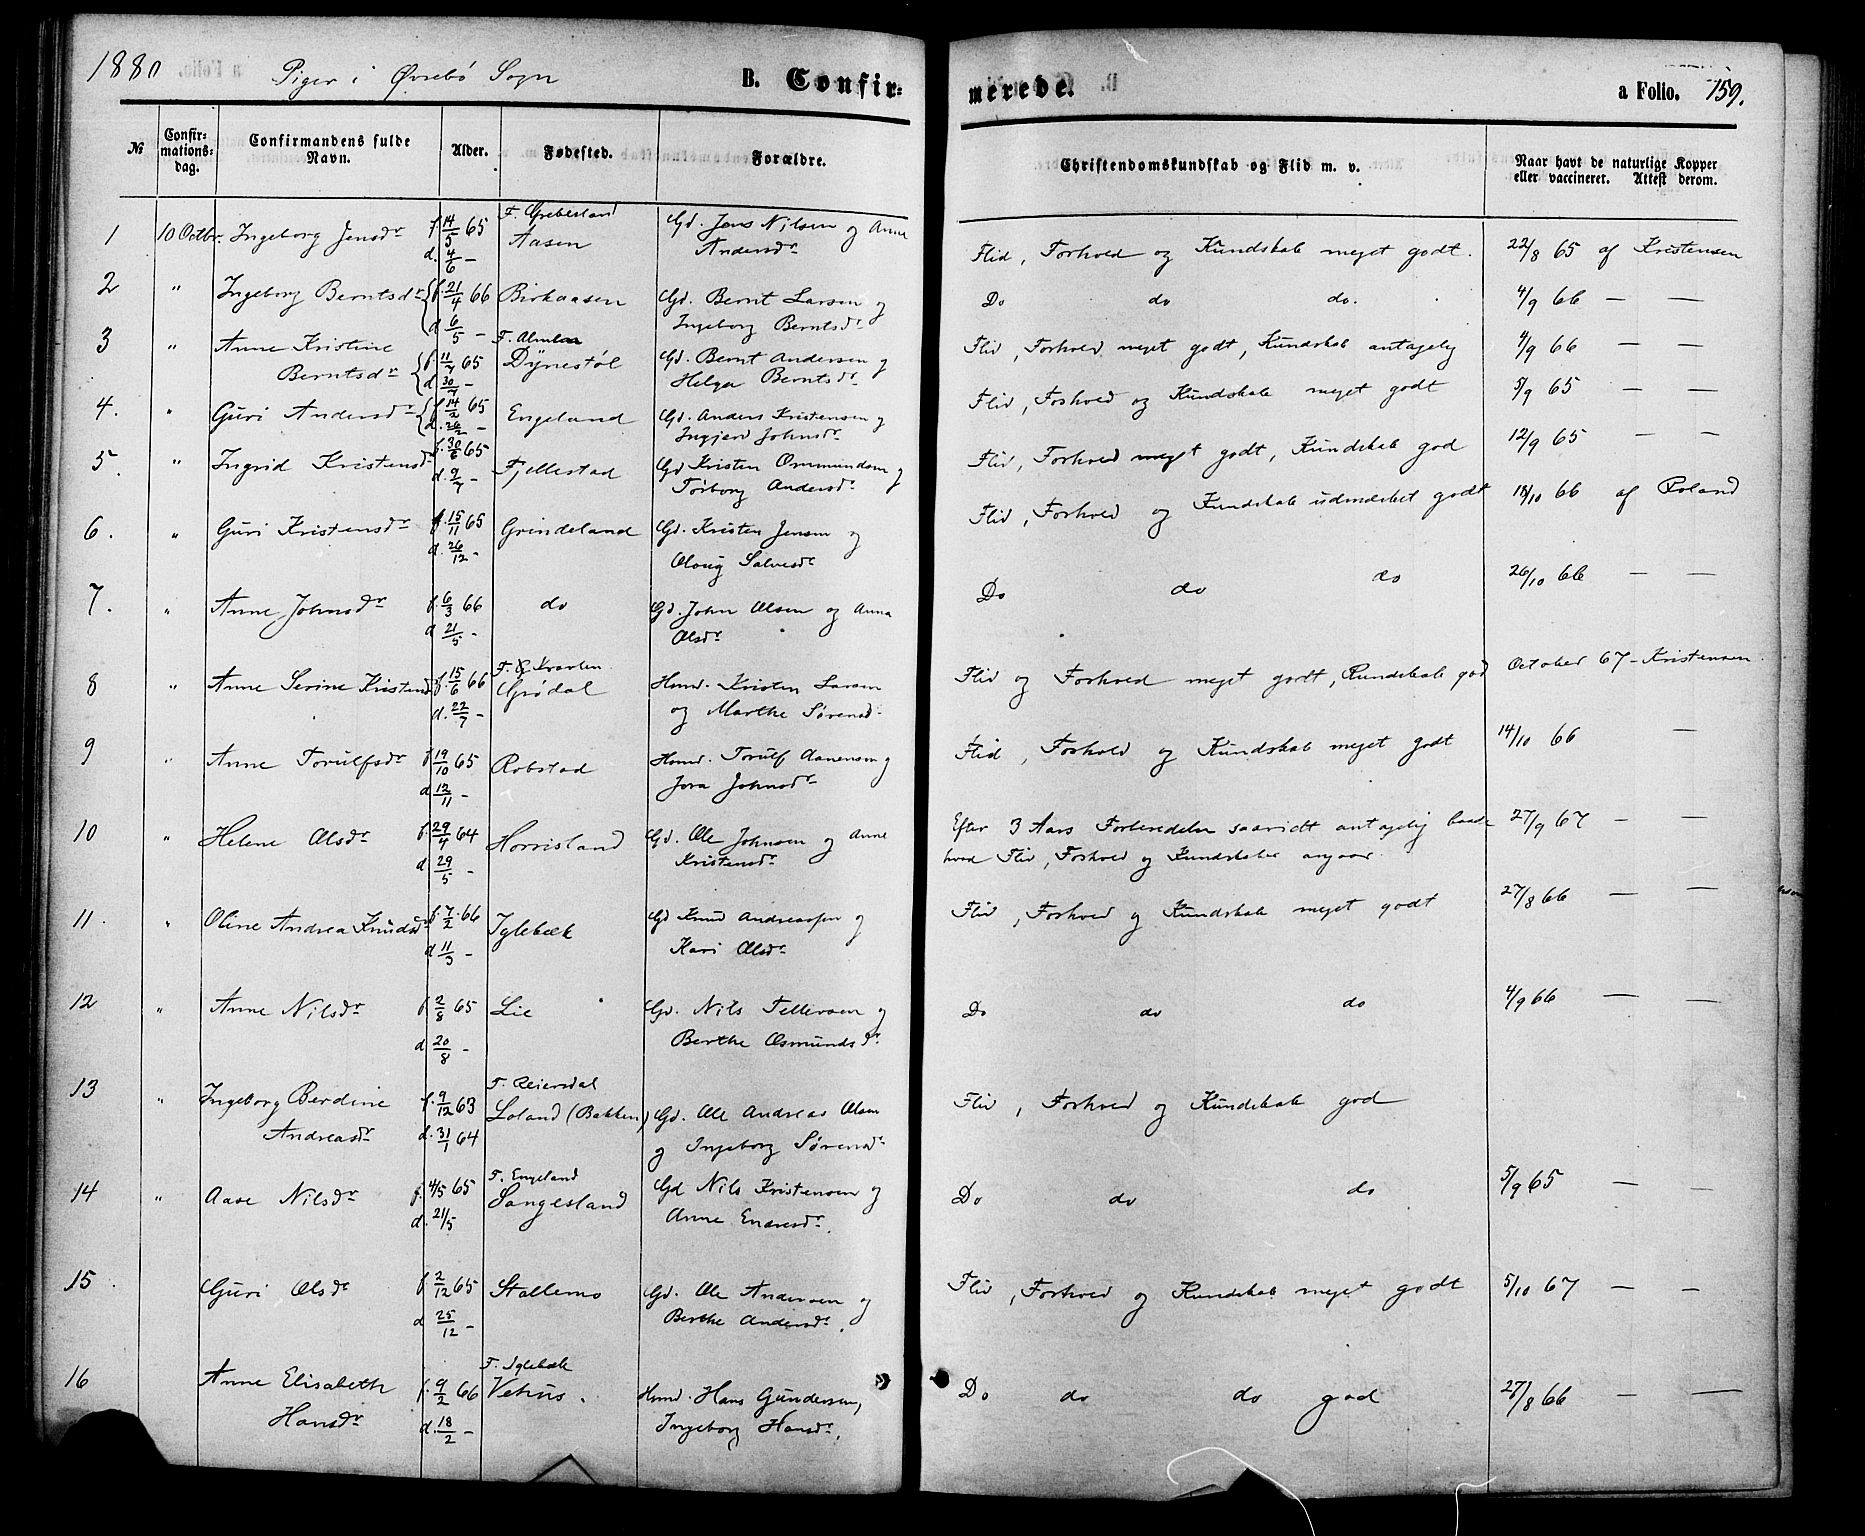 1880 Piger i Øvrebø Sogn B. Confir= merede. a Folio. 159.
№ Confir=mations=dag. Confirmandens fulde Navn. Alder. Fødested. Forældre. Christendomskundskab og Flid m. v. Naar havt de naturlige Kopper eller vaccineret. Attest derom.
1 10 Octbr. Ingeborg Jensdr f. 14/5 65 F. Greibesland Gd. Jens Nilsen og Anne Flid, Forhold og Kundskab meget godt. 22/8 65 af Kristensen
d. 4/6 — Aasen Andersdr
2 " Ingeborg Berntsdr f. 21/4 66 Birkaasen Gd. Bernt Larsen og Do do do. 4/9 66 — —
d 6/5 — Ingeborg Berntsdr
3 " Anne Kristine f. 11/7 65 Dynestøl Gd. Bernt Andersen og Flid, Forhold meget godt, Kundskab antagelig 4/9 66 — —
Berntsdr d. 30/7 — Helga Berntsdr
4. " Guri Andersdr f. 14/2 65 Engeland Gd. Anders Kristensen og Flid, Forhold og Kundskab meget godt 5/9 65 — —
d. 26/2 — Ingjerd Johnsdr
5. " Ingrid Kristensdr f. 30/6 65 Fjellestad Gd Kristen Ommundsen og Flid, Forhold meget godt, Kundskab god 12/9 65 — —
d. 9/7 — Torborg Andersdr
6. " Guri Kristensdr f. 15/11 65 Grindeland Gd. Kristen Jensen og Flid, Forhold og Kundskab udmærket godt 18/10 66 af Roland
d. 26/12 — Oloug Salvesdr
7. " Anne Johnsdr f. 6/3 66 do Gd. John Olsen og Anna Do do do 26/10 66 — —
d 21/5 — Olsdr
8 " Anne Serine Kristensd f. 15/6 66 Grødal Husmd. Kristen Larsen Flid og Forhold meget godt, Kundskab god October 67 — Kristensen
d. 22/7 — og Marthe Sørensd.
9 " Anne Torulfsdr f 19/10 65 Robstad Husmd. Torulf Aanensen og Flid, Forhold og Kundskab meget godt 14/10 66 —
d 12/11 — Jora Johnsdr
10 " Helene Olsdr f. 29/4 64 Horrisland Gd. Ole Johnsen og Anne Efter 3 Aars Forberedelse saavidt antagelig baade 27/9 67 — —
d 29/5 — Kristensdr hvad Flid, Forhold og Kundskaber angaar.
11. " Oline Andrea Knudsdr f. 7/2 66 Iglebæk Gd Knud Andreassen og Flid, Forhold og Kundskab meget godt 27/8 66 — —
d 11/3 — Kari Olsdr
12 " Anne Nilsdr f. 2/8 65 Lie Gd. Nils Tellevsen og Do do do 4/9 66 — —
d 20/8 — Berthe Osmundsdr
13 " Ingeborg Berdine f. 9/12 63 F. Reiersdal
Andreasdr d. 31/1 64 Loland (Bakken) Gd. Ole Andreas Olsen Flid, Forhold og Kundskab god
og Ingeborg Sørensdr
14 " Aase Nilsdr f. 4/5 65 F. Engeland Gd Nils Kristensen og Do do do 5/9 65 — —
d. 21/5 Sangesland Anne Enersdr.
15. Guri Olsdr f. 2/12 65 Stallemo Gd. Ole Andersen og Flid, Forhold og Kundskab meget godt 5/10 67 — —
d 25/12 — Berthe Andersdr.
16 Anne Elisabeth f. 9/2 66 F. Iglebæk Husmd. Hans Gundersen, Do do do god 27/8 66 — —
Hansdr d. 18/2 — Vehus. Ingeborg Hansdr.